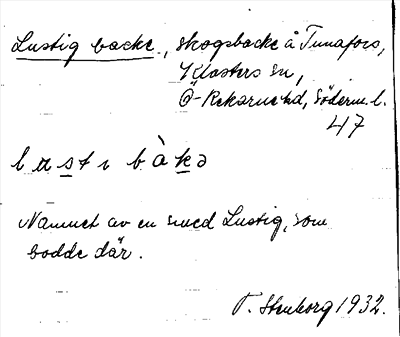 Lustig backe., skogsbacke å Tunafors,
Klosters sn,
Ö-Rekarne hd, Söderm. l.
47
lust ı bàkə
Namnet av en smed Lustig, som
bodde där.
T. Stenborg 1932.